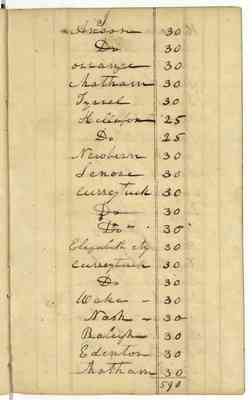 Anson 30
Do 30
orrange 30
Chatham 30
Tyrrel 30
Hillsfor 25
Do 25
Newbern 30
Lenore 30
Currytuck 30
Do 30
Do 30
Elizabeth City 30
Currytuck 30
Do 30
Wake - 30
Nash - 30
Raleigh 30
Edenton 30
Chatham 30
590